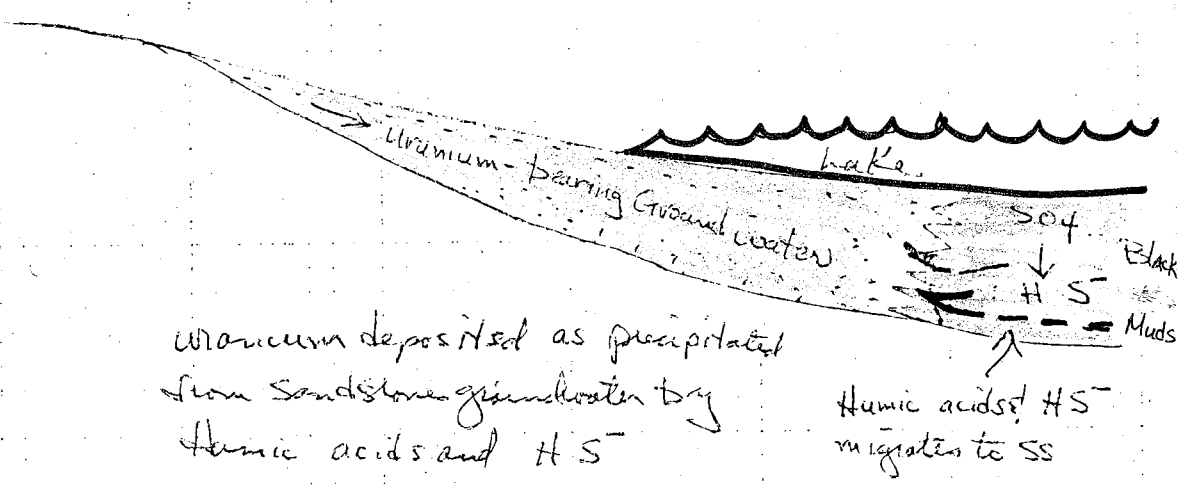 Lake
Uranium-bearing Groundwater
SO4
Black
HS⁻
Muds
uranium deposited as precipitated
from Sandstone groundwater by
Humic acids and HS⁻
Humic acids & HS⁻
migrates to SS